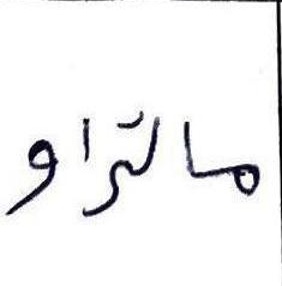 مالتراو